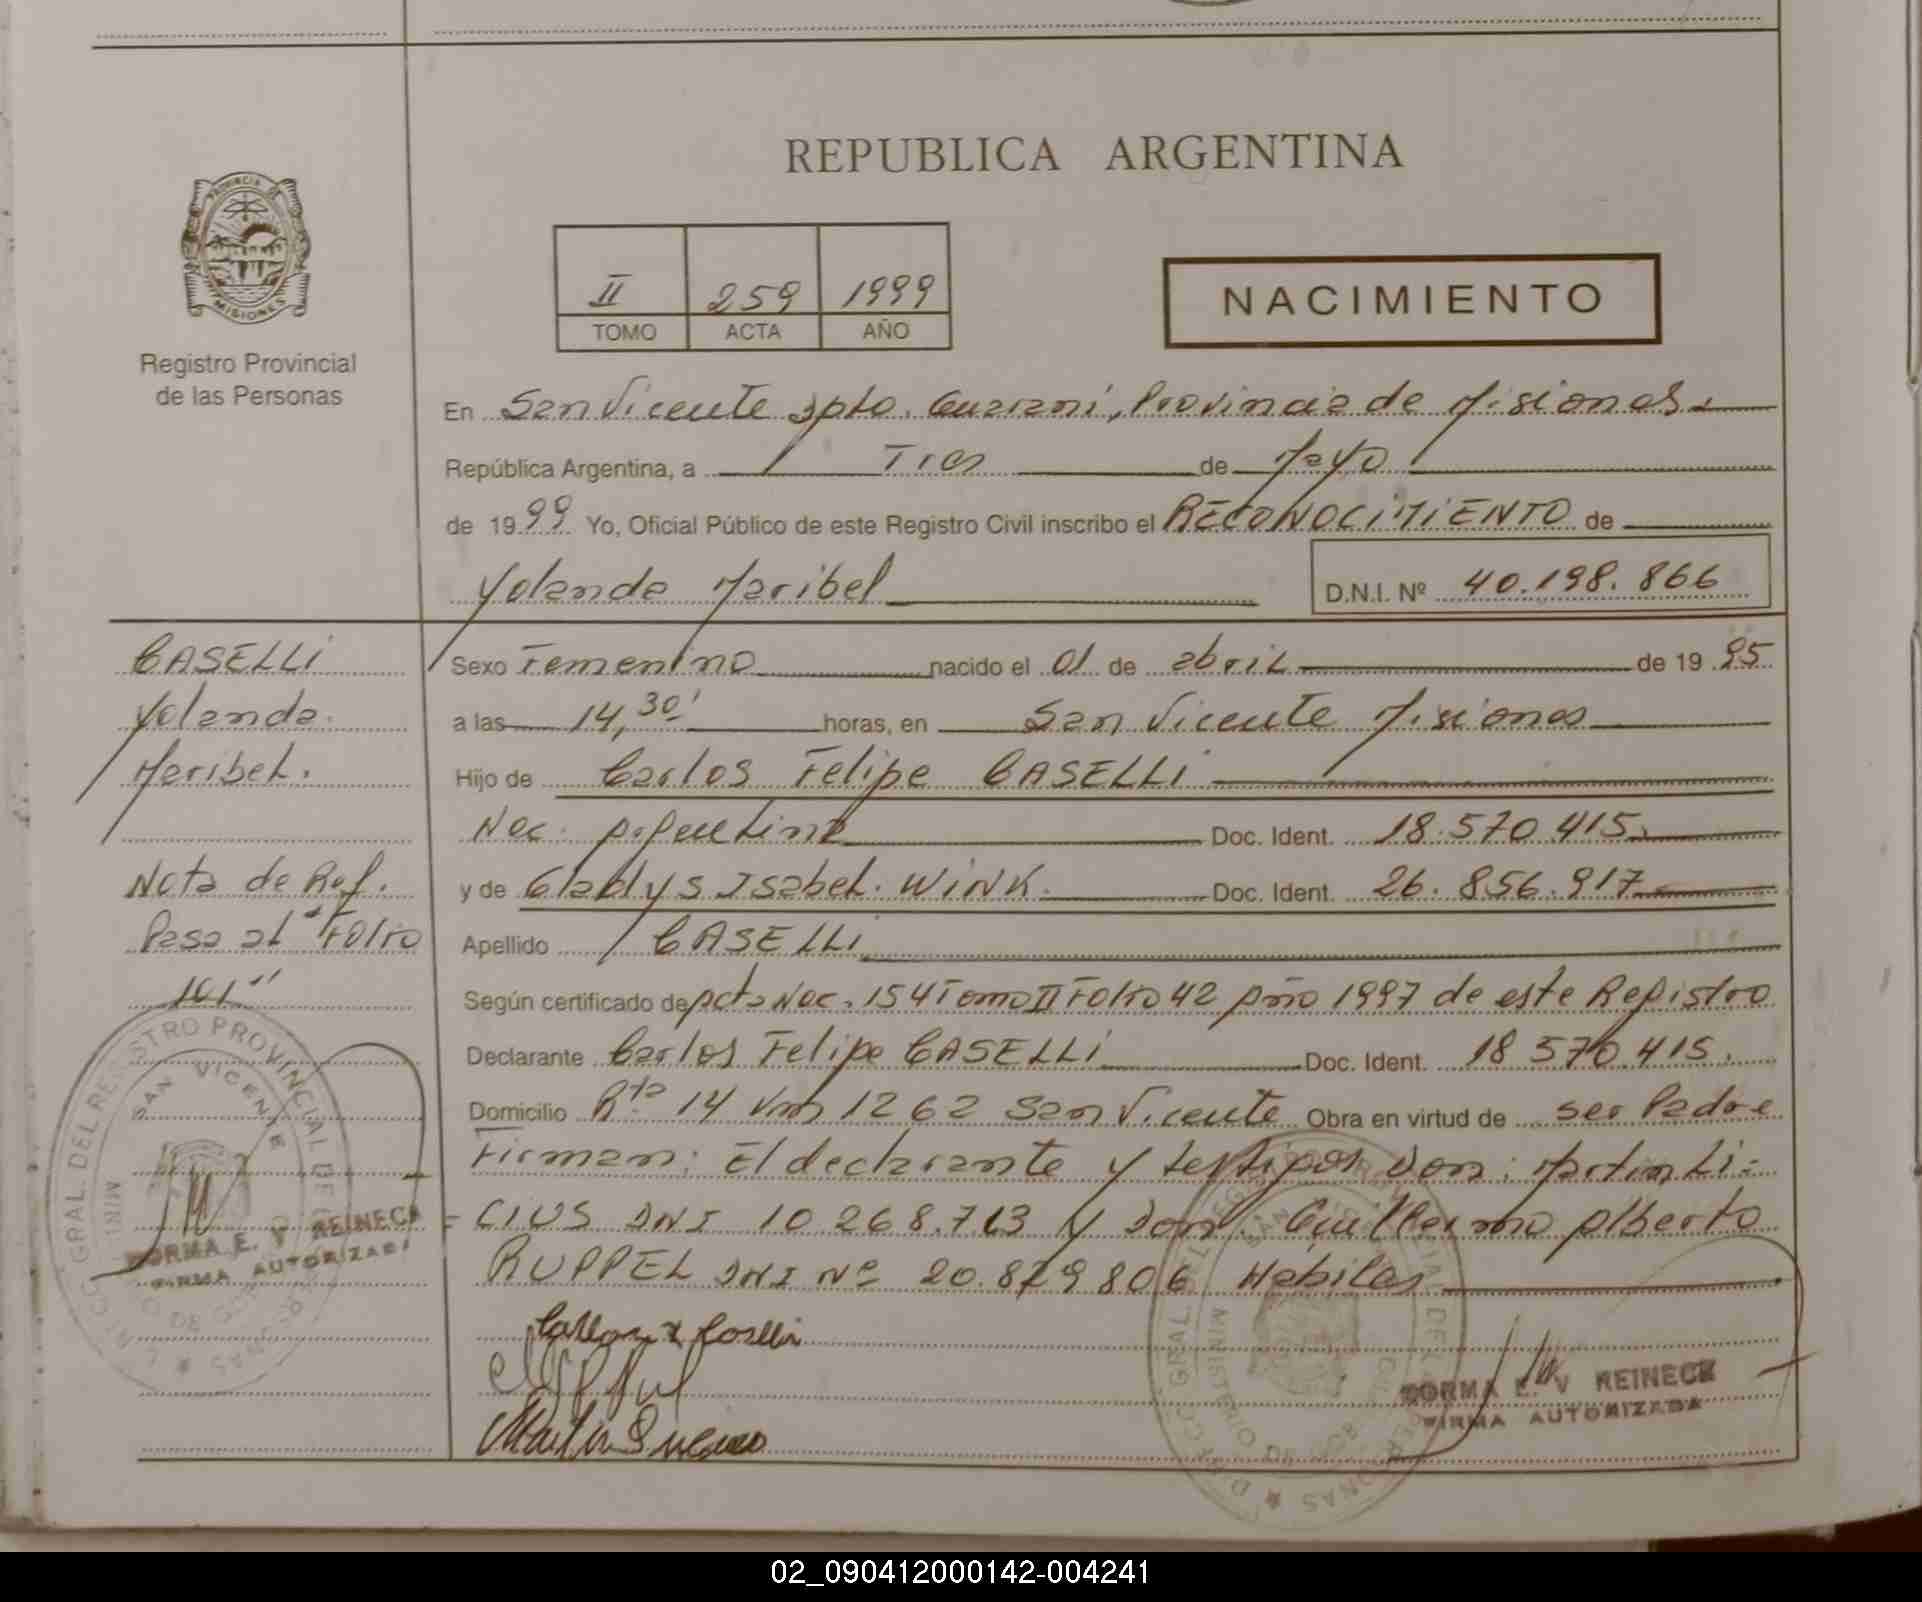 REPUBLICA ARGENTINA
PROVINCIA DE
MISIONES
Registro Provincial
de las Personas
II 259 1999
TOMO ACTA AÑO
NACIMIENTO
En San Vicente Dpto. Guarani, Provincia de Misiones.
República Argentina, a Tres de Mayo
de 1999 Yo, Oficial Público de este Registro Civil inscribo el RECONOCIMIENTO de
Yolanda Maribel
D.N.I. Nº 40.198.866
CASELLI
Yolanda
Maribel.
Nota de Ref.
Pasa al Folio
101"
Sexo Femenino nacido el 01 de abril de 1995
a las 14,30' horas, en San Vicente Misiones
Hijo de Carlos Felipe CASELLI
Nac. Argentina Doc. Ident. 18.570.415.
y de Gladys Isabel. WINK. Doc. Ident. 26.856.917
Apellido CASELLI
Según certificado de Acta Nac. 154 Tomo II Folio 42 Año 1997 de este Registro
Declarante Carlos Felipe CASELLI Doc. Ident. 18 570.415.
Domicilio Rta 14 Km 1262 San Vicente Obra en virtud de ser Padre
Firman: El declarante y testigos Don: Martin Li-
-CIUS DNI 10 268.713 y Don. Guillermo Alberto
RUPPEL DNI Nº 20.829.806 Habiles
NORMA E. V REINECK
FIRMA AUTORIZADA
NORMA E. V REINECK
FIRMA AUTORIZADA
GRAL. DEL REGISTRO PROVINCIAL DE
SAN VICENTE
02_090412000142-004241